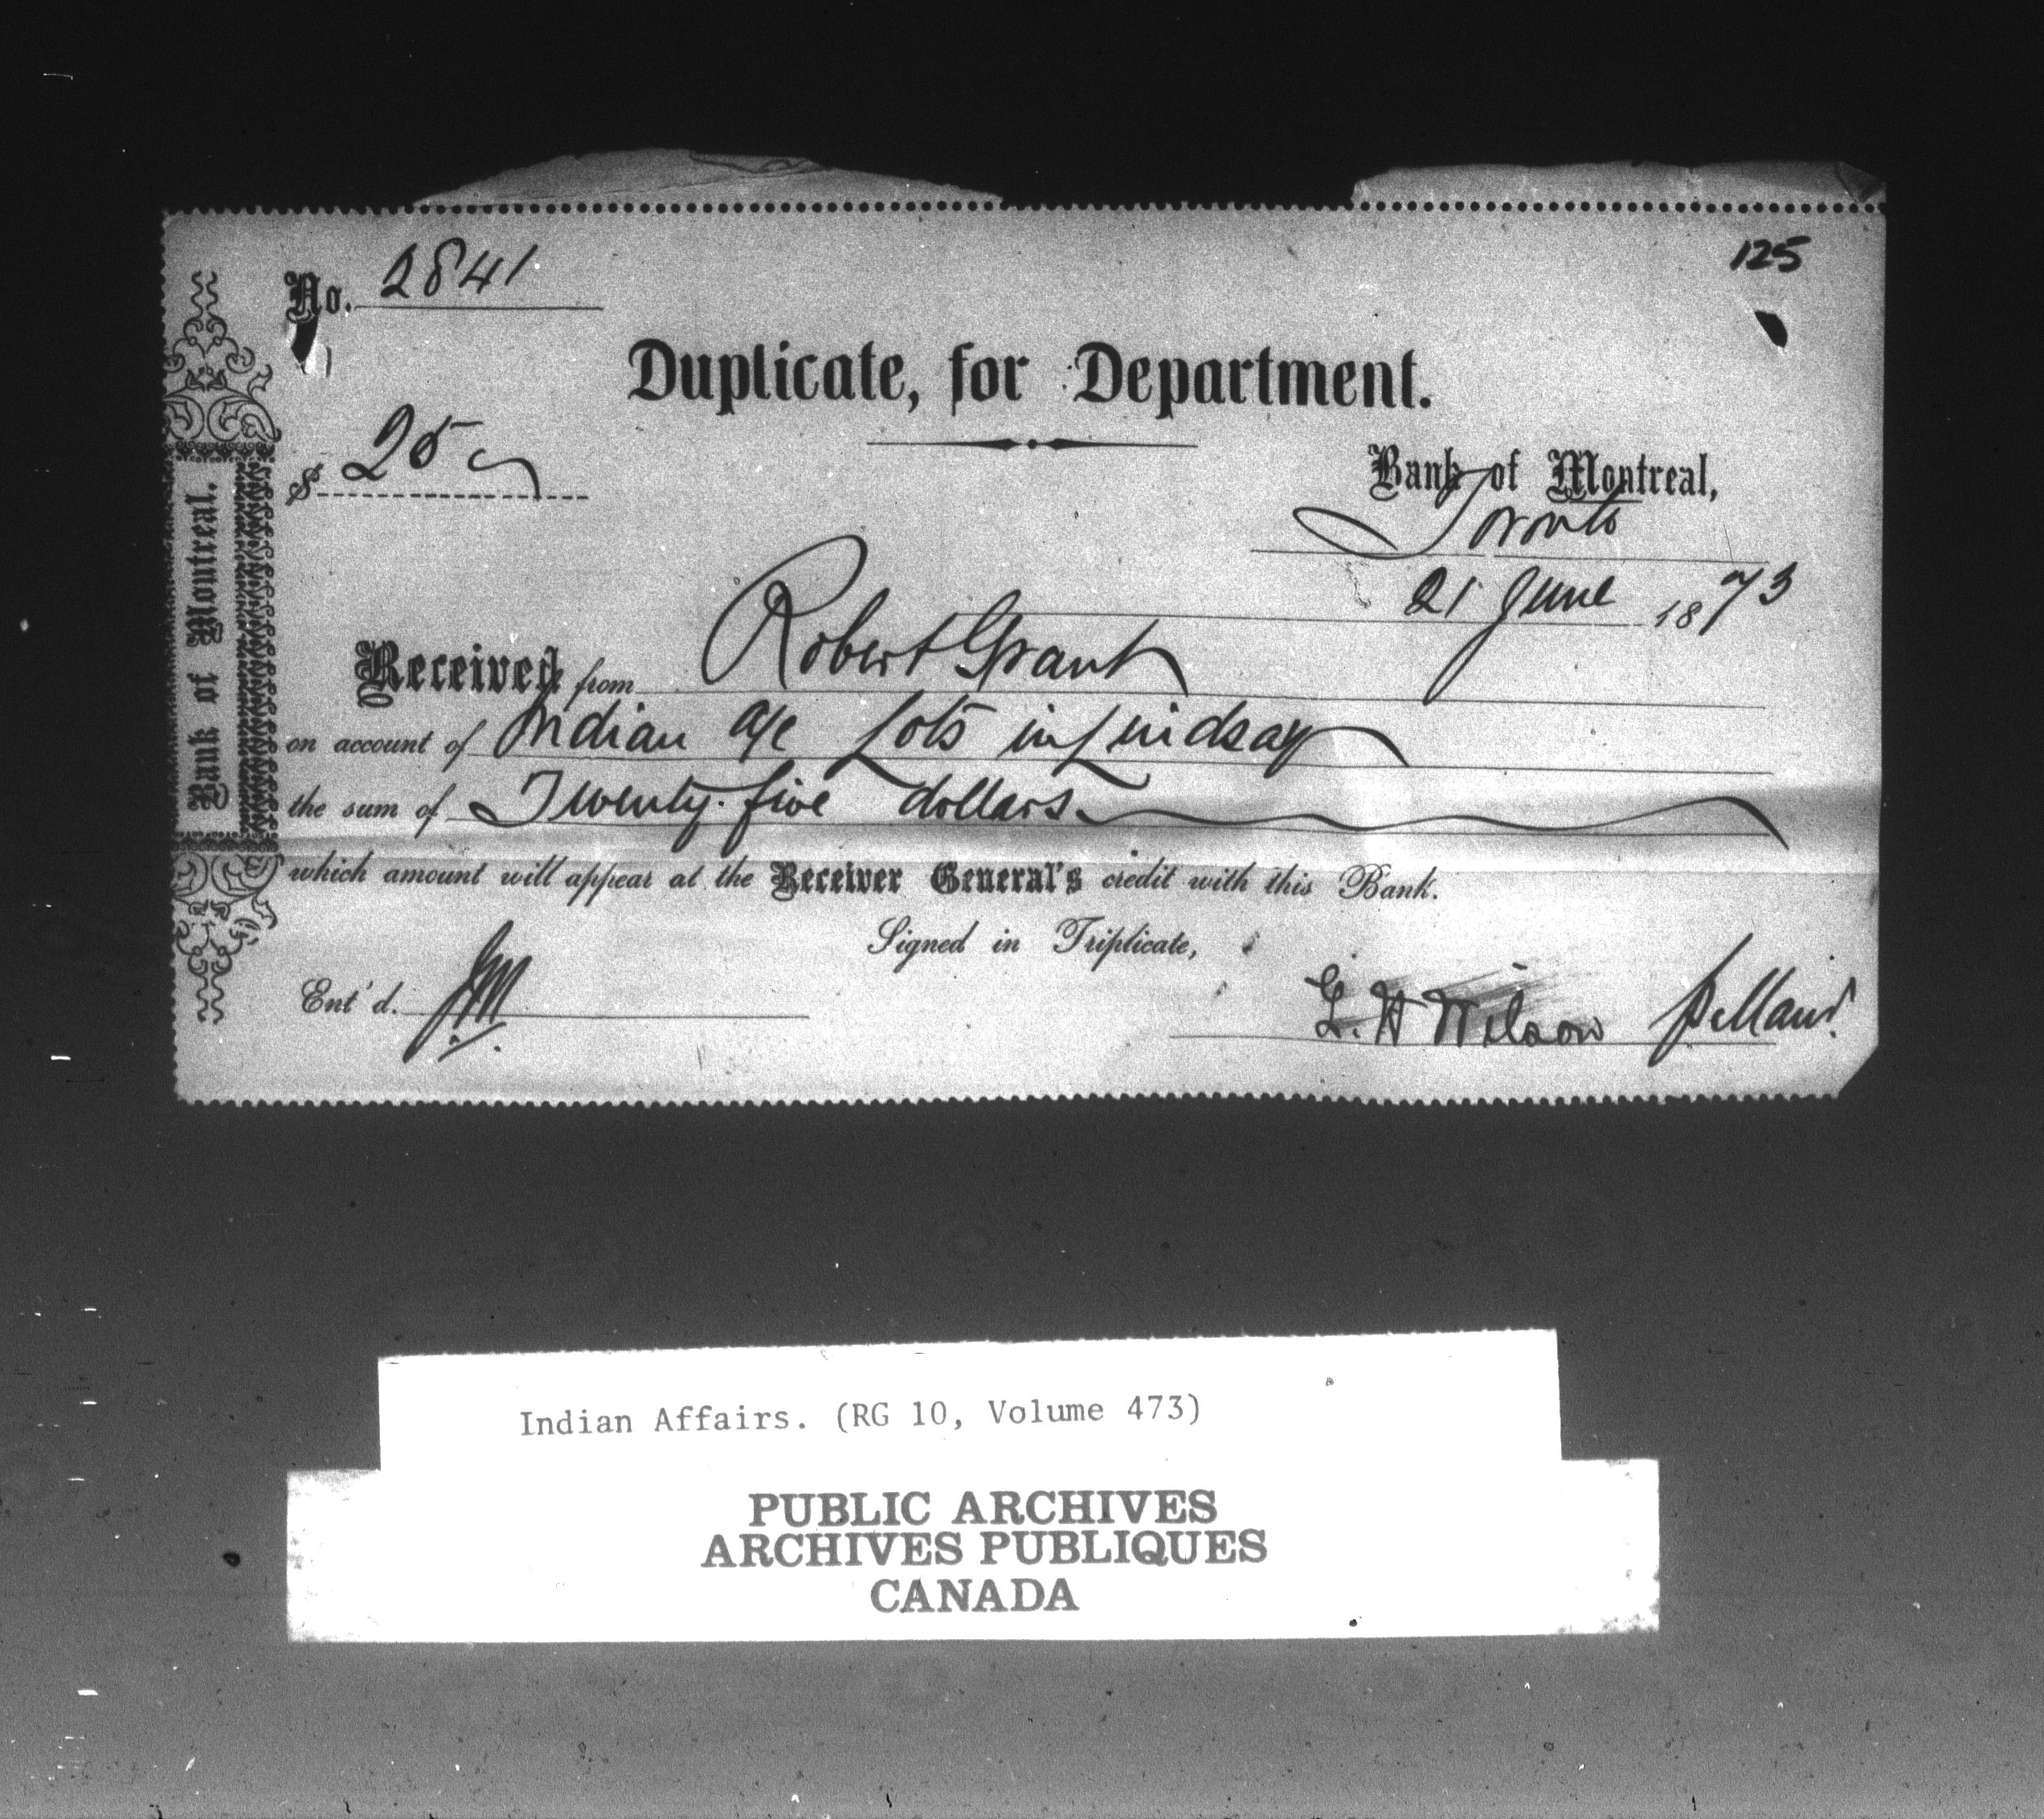 125
No. 2841
Duplicate, for Department.
$ 25
Bank of Montreal,
Toronto
21 June 1873
Received from Robert Grant
on account of Indian a/c Lots in Lindsay
the sum of Twenty-five dollars
which amount will appear at the Receiver General's credit with this Bank.
Signed in Triplicate,
Ent'd. JM
G. H Wilson p. Man'.
Bank of Montreal.
Indian Affairs. (RG 10, Volume 473)
PUBLIC ARCHIVES
ARCHIVES PUBLIQUES
CANADA